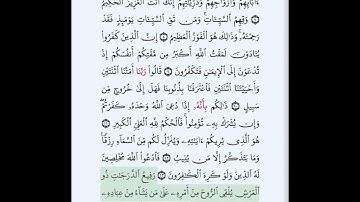 ءَابَآئِهِمْ وَأَزْوَٰجِهِمْ وَذُرِّيَّٰتِهِمْ إِنَّكَ أَنتَ ٱلْعَزِيزُ ٱلْحَكِيمُ
۝ وَقِهِمُ ٱلسَّيِّـَٔاتِ وَمَن تَقِ ٱلسَّيِّـَٔاتِ يَوْمَئِذٍ فَقَدْ
رَحِمْتَهُۥ وَذَٰلِكَ هُوَ ٱلْفَوْزُ ٱلْعَظِيمُ ۝ إِنَّ ٱلَّذِينَ كَفَرُوا۟
يُنَادَوْنَ لَمَقْتُ ٱللَّهِ أَكْبَرُ مِن مَّقْتِكُمْ أَنفُسَكُمْ إِذْ
تُدْعَوْنَ إِلَى ٱلْإِيمَٰنِ فَتَكْفُرُونَ ۝ قَالُوا۟ رَبَّنَآ أَمَتَّنَا ٱثْنَتَيْنِ
وَأَحْيَيْتَنَا ٱثْنَتَيْنِ فَٱعْتَرَفْنَا بِذُنُوبِنَا فَهَلْ إِلَىٰ خُرُوجٍ مِّن
سَبِيلٍ ۝ ذَٰلِكُم بِأَنَّهُۥٓ إِذَا دُعِىَ ٱللَّهُ وَحْدَهُۥ كَفَرْتُمْ
وَإِن يُشْرَكْ بِهِۦ تُؤْمِنُوا۟ فَٱلْحُكْمُ لِلَّهِ ٱلْعَلِىِّ ٱلْكَبِيرِ ۝
هُوَ ٱلَّذِى يُرِيكُمْ ءَايَٰتِهِۦ وَيُنَزِّلُ لَكُم مِّنَ ٱلسَّمَآءِ رِزْقًا
وَمَا يَتَذَكَّرُ إِلَّا مَن يُنِيبُ ۝ فَٱدْعُوا۟ ٱللَّهَ مُخْلِصِينَ
لَهُ ٱلدِّينَ وَلَوْ كَرِهَ ٱلْكَٰفِرُونَ ۝ رَفِيعُ ٱلدَّرَجَٰتِ ذُو
ٱلْعَرْشِ يُلْقِى ٱلرُّوحَ مِنْ أَمْرِهِۦ عَلَىٰ مَن يَشَآءُ مِنْ عِبَادِهِۦ